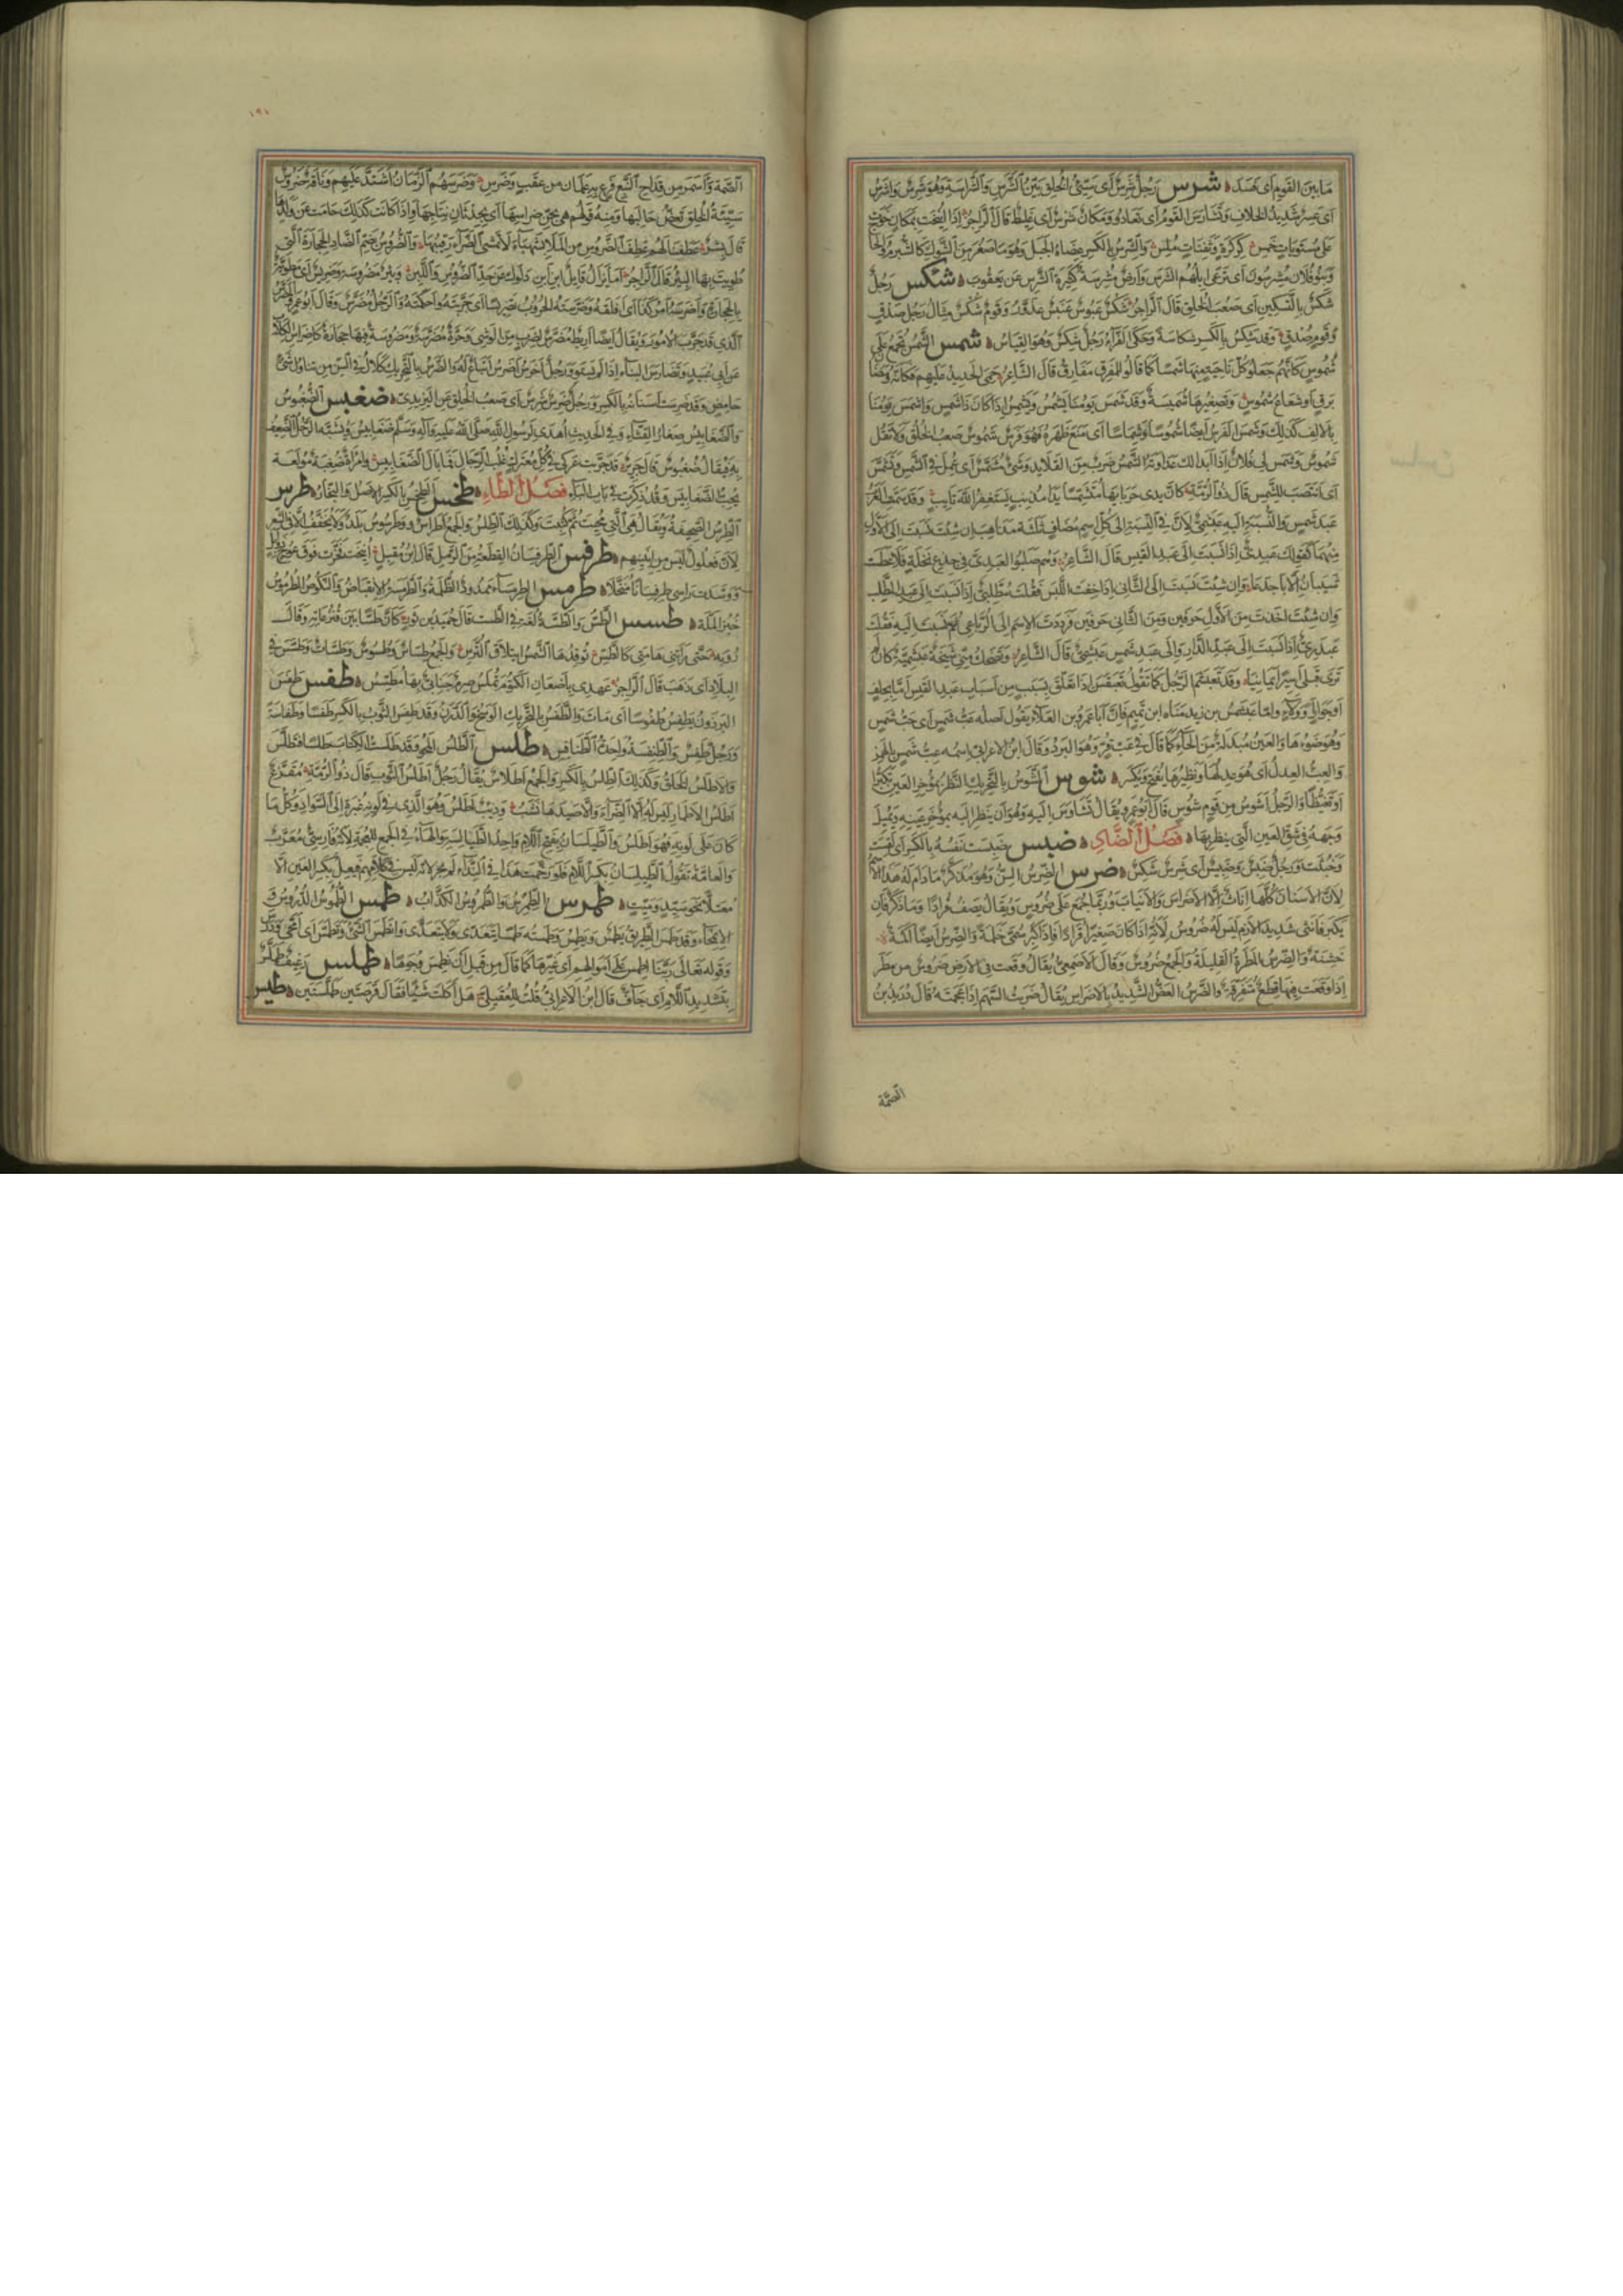 ما بين القوم اى فسد ۞ شرس رجل شرس اى سيئ الخلق بين الشرس والشراسة وهو شرس واشرس
اى عسر شديد الخلاف وتشارس القوم اى تعادوا ومكان شرس اى غليظ قال الراجز اذا انيخت بمكان شرس خوت
على مستويات خمس كركرة وثفنات ملس والشرس بالكسر عضاه الجبل وهو ما صغر من الشوك كالشبرم والحاج
وبنو فلان مشرسون اى ترعى ابلهم الشرس وارض مشرسة كثيرة الشرس عن يعقوب ۞ شكس رجل
شكس بالتسكين اى صعب الخلق قال الراجز شكس عبوس عنبس عذور وقوم شكس مثال رجل صدق
وقوم صدق وقد شكس بالكسر شكاسة وحكى الفراء رجل شكس وهو القياس ۞ شمس الشمس تجمع على
شموس كانهم جعلوا كل ناحية منها شمسا كما قالوا للمفرق مفارق قال الشاعر حمى الحديد عليهم فكانه ومضان
برق او شعاع شموس وتصغيرها شميسة وقد شمس يومنا يشمس ويشمس اذا كان ذا شمس واشمس يومنا
بالالف كذلك وشمس الفرس ايضا شموسا وشماسا اى منع ظهره فهو فرس شموس صعب الخلق ولا تقل
شموص وشمس لى فلان اذا ابدا لك عداوته الشمس ضرب من القلايد وشئ مشمس اى عمل فى الشمس وتشمس
اى انتصب للشمس قال ذو الرمة كان يدى حربائها متشمسا يدا مذنب يستغفر الله تايب وقد سمت العرب
عبد شمس والنسبة اليه عبشمى لان فى النسبة الى كل اسم مضاف ثلثة مذاهب ان شئت نسبت الى الاول
منهما كقولك عبدى اذا نسبت الى عبد القيس قال الشاعر وهم صلبوا العبدى فى جذع نخلة فلا عطست
شيبان الا باجدعا وان شئت نسبت الى الثانى اذا خفت اللبس فقلت مطلبى اذا نسبت الى عبد المطلب
وان شئت اخذت من الاول حرفين ومن الثانى حرفين فرددت الاسم الى الرباعى ثم نسبت اليه فقلت
عبدرى اذا نسبت الى عبد الدار والى عبد شمس عبشمى قال الشاعر وتضحك منى شيخة عبشمية كان لم
ترى قبلى اسيرا يمانيا وقد تعبشم الرجل كما تقول تعبقس اذا تعلق بسبب من اسباب عبد القيس اما بحلف
او جوار او ولاء واما عبشمس بن زيد مناة ابن تميم فان ابا عمرو بن العلاء يقول اصله عب شمس اى حب شمس
وهو ضوءها والعين مبدلة من الحاء كما قال فى عب قر وهو البرد وقال ابن الاعرابى اسمه عبء شمس بالهمز
والعبء العدل اى هو عدلها ونظيرها يفتح ويكسر ۞ شوس الشوس بالتحريك النظر بمؤخر العين تكبرا
او تغيظا والرجل اشوس من قوم شوس قال ابو عمرو يقال تشاوس اليه وهو ان ينظر اليه بمؤخر عينه ويميل
وجهه فى شق العين التى ينظر بها ۞ فصل الضاد ۞ ضبس ضبست نفسه بالكسر اى لقست
وخبثت ورجل ضبس وضبيس اى شرس شكس ۞ ضرس الضرس السن وهو مذكر ما دام له هذا الاسم
لان الاسنان كلها اناث الا الاضراس والانياب وربما جمع على ضروس ويقال يصف قرادا وما ذكر فان
يكبر فانثى شديد الازم ليس له ضروس لانه اذا كان صغيرا قرادا فاذا كبر سمى حلمة والضرس ايضا اكمة
خشنة والضرس المطرة القليلة والجمع ضروس وقال الاصمعى يقال وقعت فى الارض ضروس من مطر
اذا وقعت فيها قطع متفرقة والضرس العض الشديد بالاضراس يقال ضرست السهم اذا عجمته قال دريد بن
الصمة
١٩١
الصمة واسمر من قداح النبع فرع به علمان من عقب وضرس وضرسهم الزمان اشتد عليهم وناقة ضروس
سيئة الخلق تعض حالبها ومنه قولهم هى بجن ضراسها اى بحدثان نتاجها واذا كانت كذلك حامت عن ولدها
قال بشر عطفنا لهم عطف الضروس من الملا بشهباء لا يمشى الضراء رقيبها والضروس بضم الضاد الحجارة التى
طويت بها البئر قال الراجز اما يزال قايل ابن ابن دلوك عن حد الضروس واللبن وبئر مضروسة وضريس اى مطوية
بالحجارة واضرسه امر كذا اى اقلقه وضرسته الحروب تضريسا اى جربته واحكمته والرجل مضرس وقال ابو عمرو المضرس
الذى قد جرب الامور ويقال ايضا ريط مضرس لضرب من الوشى وحرة مضرسة ومضروسة فيها حجارة كاضراس الكلاب
عن ابى عبيد وتضارس البناء اذا لم يستو ورجل اخرس اضرس اتباع له والضرس بالتحريك كلال فى السن من تناول شئ
حامض وقد ضرست اسنانه بالكسر ورجل ضرس شرس اى صعب الخلق عن اليزيدى ۞ ضغبس الضغبوس
والضغابيس صغار القثاء وفى الحديث اهدى لرسول الله صلى الله عليه وآله وسلم ضغابيس ويشبه الرجل الضعيف
به فيقال ضغبوس قال جرير قد جربت عركى فى كل معترك غلب الرجال فما بال الضغابيس وامراة ضغبة مولعة
بحب الضغابيس وقد ذكرت فى باب الباء فصل الطاء ۞ طخس الطخس بالكسر الاصل والنجار ۞ طرس
الطرس الصحيفة ويقال هى التى محيت ثم كتبت وكذلك الطلس والجمع اطراس وطرسوس بلد ولا يخفف الا فى الشعر
لان فعلول ليس من ابنيتهم ۞ طرفس الطرفسان القطعة من الرمل قال ابن مقبل انيخت فخرت فوق عوج ذوابل
ووسدت راسى طرفسانا منخلا ۞ طرمس الطرمساء ممدود الظلمة والطرمسة الانقباض والنكوص الطرموس
خبز الملة ۞ طسس الطس والطسة لغة فى الطست قال حميد بن ثور كان طسا بين قنزعاته وقال
روبة حتى راتنى هامتى كالطس توقدها الشمس ايتلاق الترس والجمع طساس وطسوس وطسات وطسس فى
البلاد اى ذهب قال الراجز عهدى باظعان الكتوم تملس صرم جنانى بها مطسس ۞ طفس طفس
البرذون يطفس طفوسا اى مات والطفس بالتحريك الوسخ والدرن وقد طفس الثوب بالكسر طفسا وطفاسة
ورجل طفس والطنفسة واحدة الطنافس ۞ طلس الطلس المحو وقد طلست الكتاب طلسا فتطلس
والاطلس الخلق وكذلك الطلس بالكسر والجمع اطلاس يقال رجل اطلس الثوب قال ذو الرمة مقزع
اطلس الاطمار ليس له الا الضراء والا صيدها نشب وذئب اطلس وهو الذى فى لونه غبرة الى السواد وكل ما
كان على لونه فهو اطلس والطيلسان بفتح اللام واحد الطيالسة والهاء فى الجمع للعجمة لانه فارسى معرب
والعامة تقول الطيلسان بكسر اللام فلو رخمت هذا فى النداء لم يجز لانه ليس فى كلامهم فيعل بكسر العين الا
معتلا نحو سيد وميت ۞ طمرس الطمرس والطمروس الكذاب ۞ طمس الطموس الدروس
الامحاء وقد طمس الطريق يطمس ويطمس وطمسته طمسا يتعدى ولا يتعدى وانطمس الشئ وتطمس اى امحى ودرس
وقوله تعالى ربنا اطمس على اموالهم اى غيرها كما قال من قبل ان نطمس وجوها ۞ طملس رغيف طملس
بتشديد اللام اى جاف قال ابن الاعرابى قلت للعقيلى هل اكلت شيئا فقال قرصتين طملستين ۞ طيس